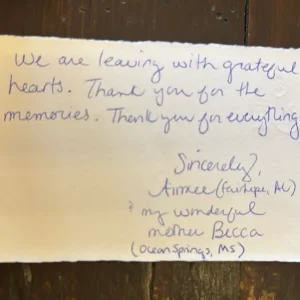 We are leaving with grateful
hearts. Thank you for the
memories. Thank you for everything
Sincerely,
Aimee (Fairhope, AL)
& my wonderful
mother Becca
(Ocean Springs, MS)